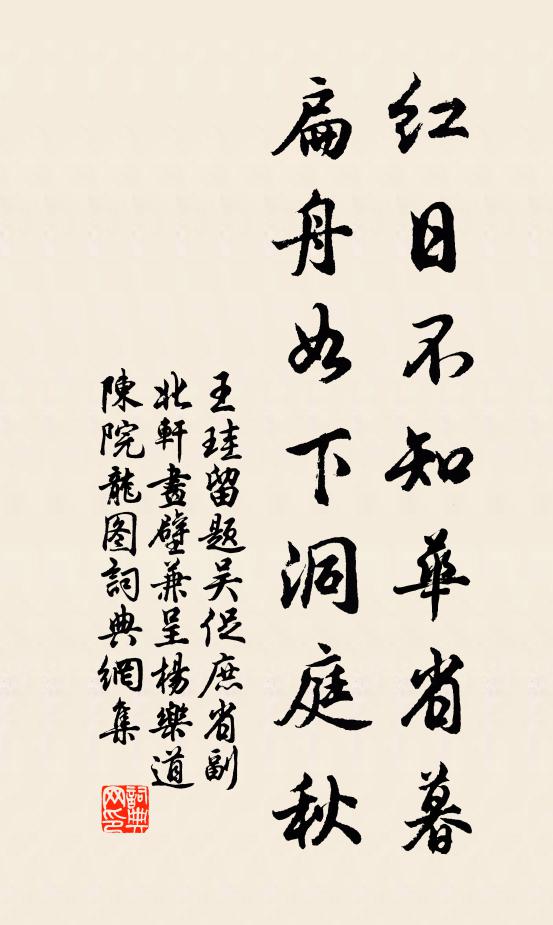 红日不知華省暮
扁舟如下洞庭秋
王珪留题吴促庶省副
北軒畫壁兼呈楊樂道
陳院龍图詞典網集
詞典网印